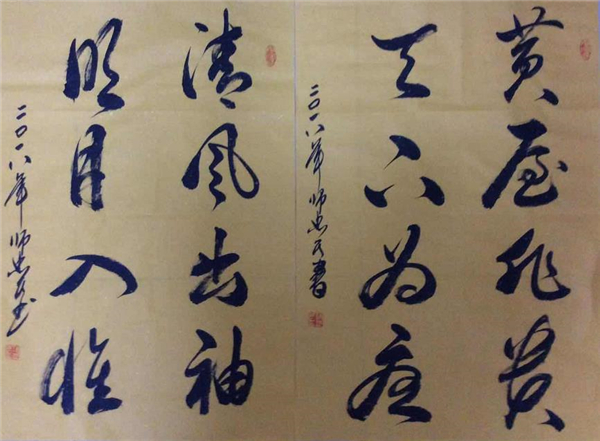 黄屋非贵
天下为
二〇一八年师忠书
清风出袖
明月入怀
二〇一八年师忠书